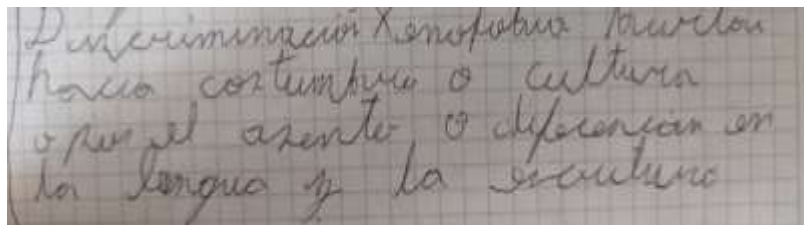 Discriminación Xenofobia burlas
hacia costumbres o cultura
o por el asento o diferencias en
la lengua y la escritura